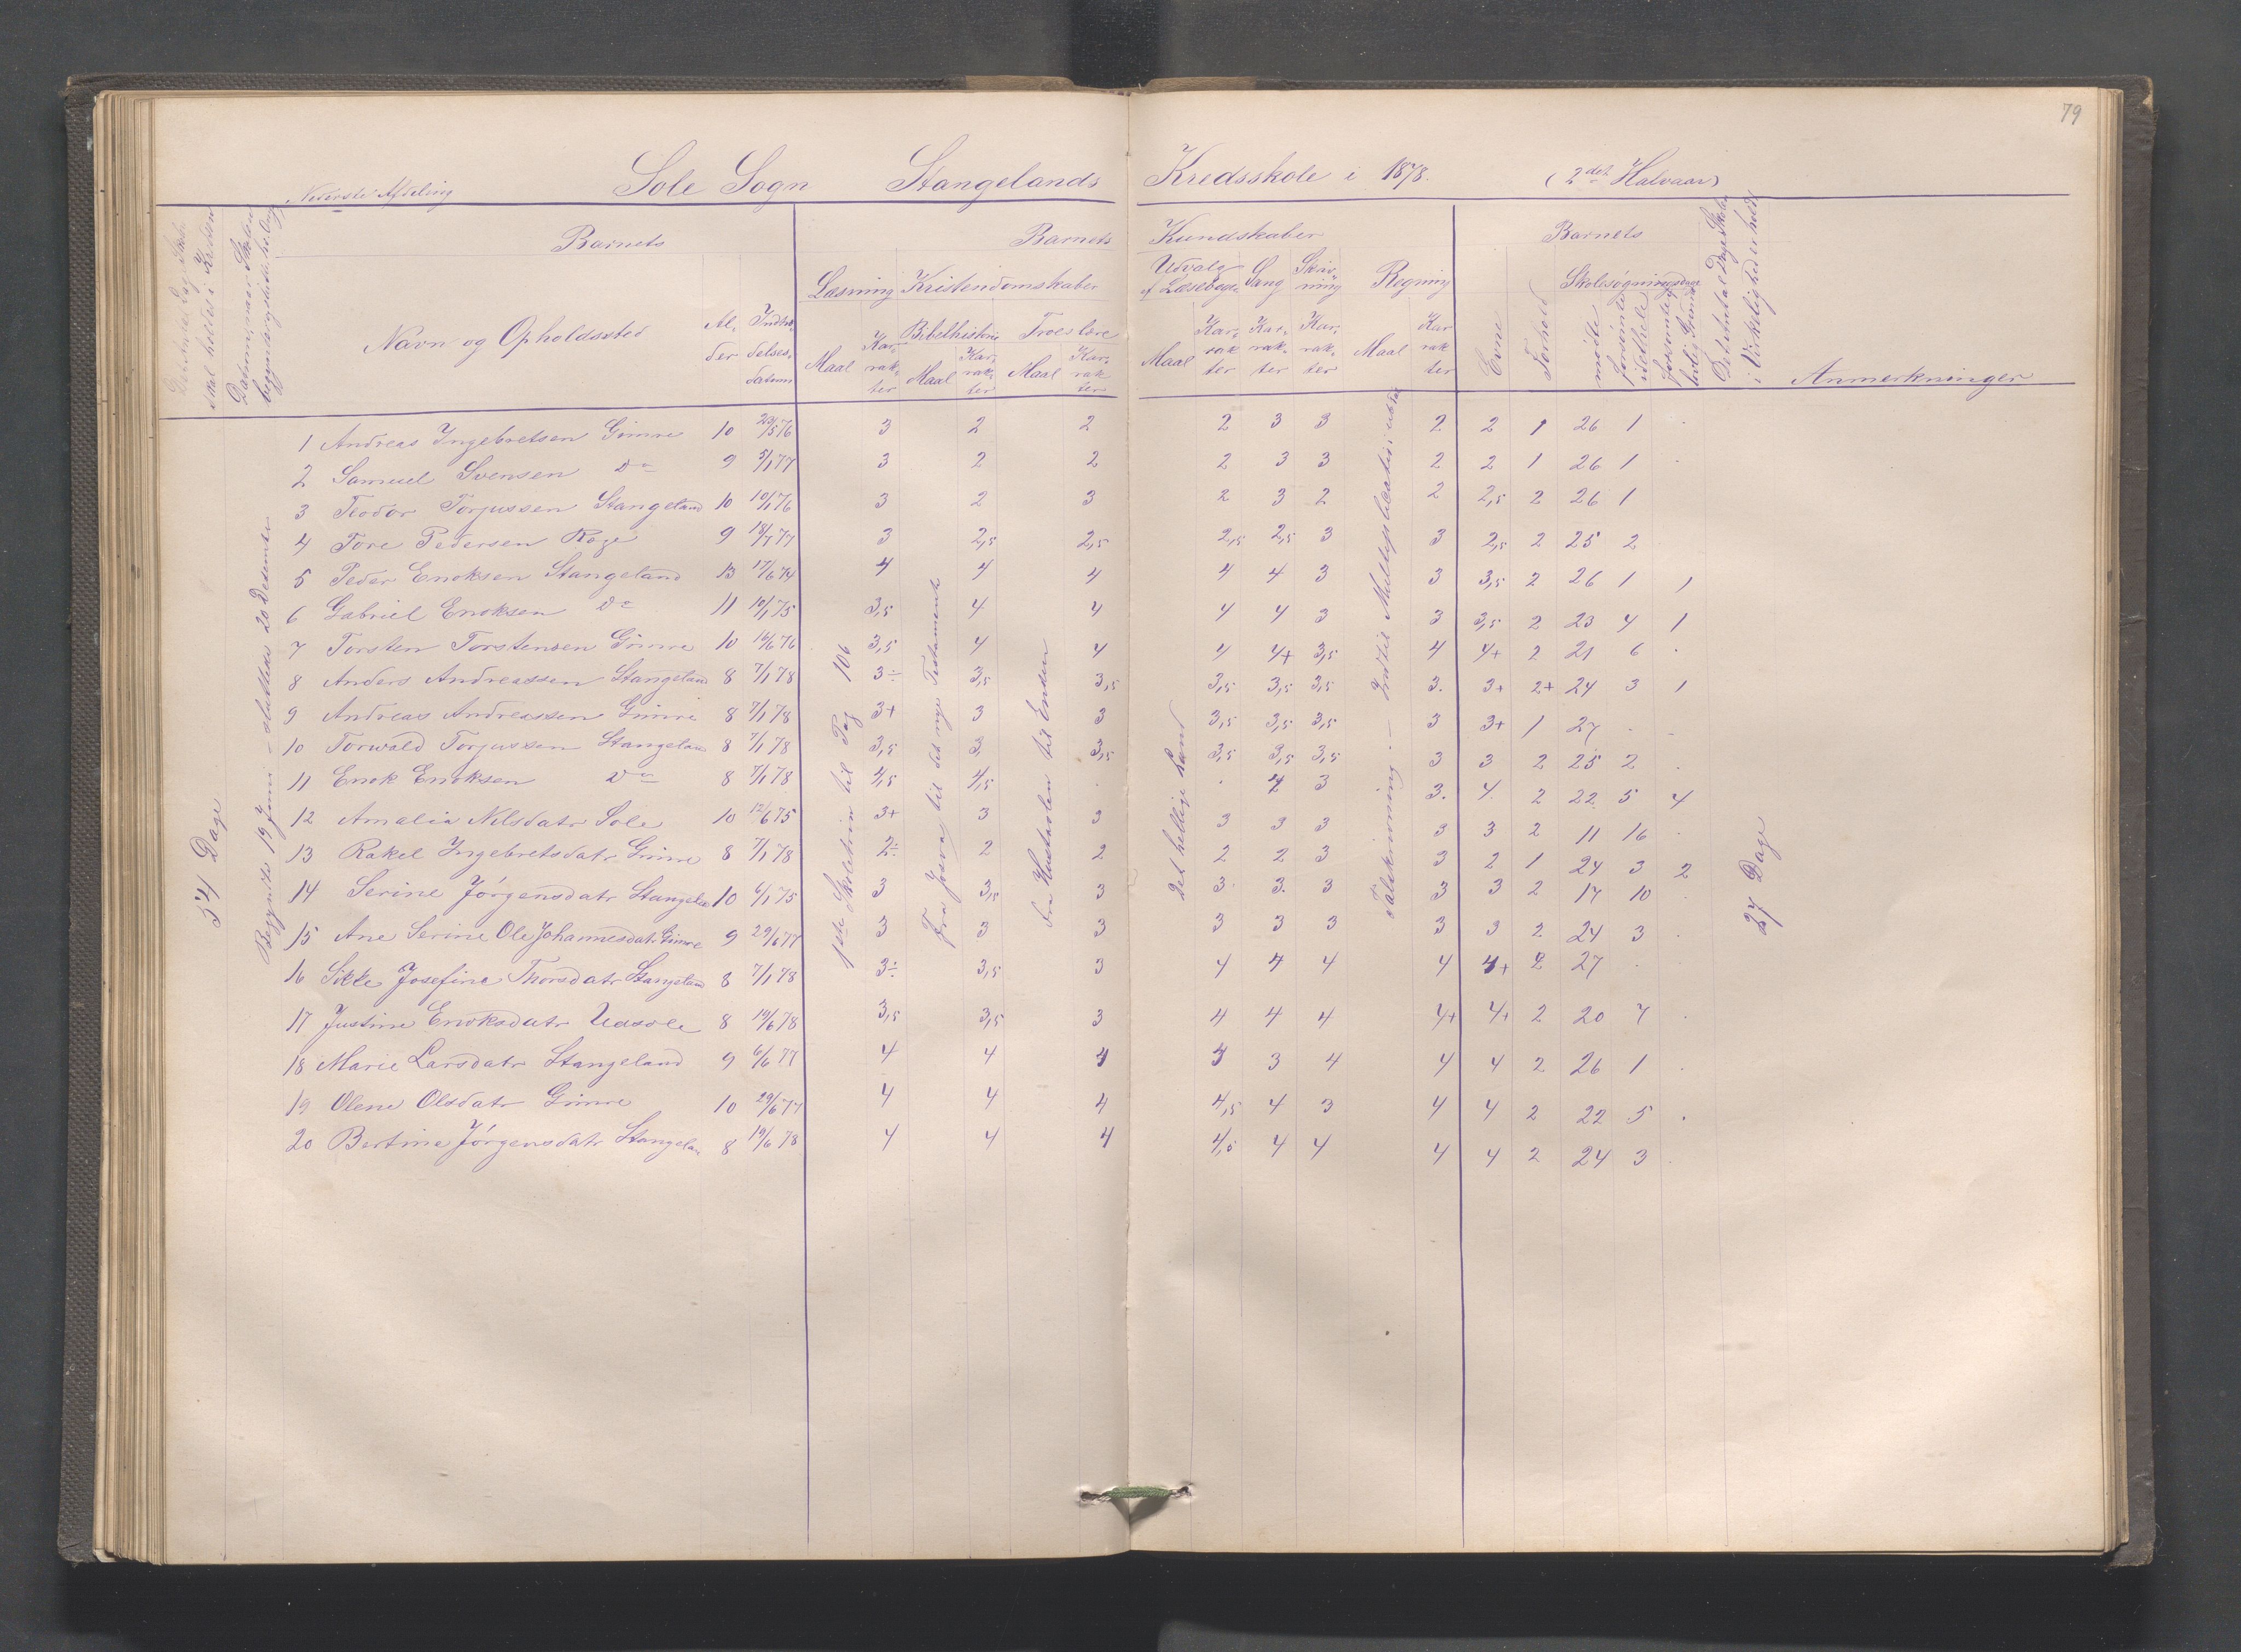 79
Nederste Afdeling Sole Sogn Stangelands Kredsskole i 1878. (2det Halvaar)
Det Antal Dage Skole skal holdes i Kredsen
Datum, naar Skolen begynder og slutter hver Omgang
Barnets Barnets Kundskaber Barnets
Navn og Opholdssted
Alder
Indtrædelses Datum
Læsning Kristendomskaber Udvalg af Læsebogen Sang Skrivning Regning
Bibelhistorie Troeslære
Maal Karrakter Maal Karrakter Maal Karrakter Maal Karrakter Karrakter Karrakter Maal Karrakter
Evne Forhold Skolesøgning mødte forsømte idethele forsømte af lovlig Grund
Det Antal Dage Skole i Virkeligheden er holdt
Anmerkninger
54 Dage
Begyndte 19 Juni - sluttede 20 December
1ste Skoletrin til Pag 106
Fra Josva til det nye Testamente
Fra Hustavlen til Enden
Det hellige Land
Talskrivning. - Indtil Multiplikation
27 Dage
1 Andreas Ingebretsen Gimre 10 23/5 76 3 2 2 2 3 3 2 2 1 26 1 .
2 Samuel Svensen Do 9 5/1 77 3 2 2 2 3 3 2 2 1 26 1 .
3 Teodor Torjussen Stangeland 10 10/1 76 3 2 3 2 3 2 2 2,5 2 26 1
4 Tore Pedersen Røge 9 18/7 77 3 2,5 2,5 2,5 2,5 3 3 2,5 2 25 2
5 Peder Enoksen Stangeland 13 17/6 74 4 4 4 4 4 3 3 3,5 2 26 1 1
6 Gabriel Enoksen Do 11 10/1 75 3,5 4 4 4 4 3 3 3,5 2 23 4 1
7 Torsten Torstensen Gimre 10 16/6 76 3,5 4 4 4 4+ 3,5 4 4+ 2 21 6 .
8 Anders Andreassen Stangeland 8 7/1 78 3÷ 3,5 3,5 3,5 3,5 3,5 3. 3+ 2+ 24 3 1
9 Andreas Andreassen Gimre 8 7/1 78 3+ 3 3 3,5 3,5 3,5 3 3+ 1 27 . .
10 Torwald Torjussen Stangeland 8 7/1 78 3,5 3 3,5 3,5 3,5 3,5 3 3 2 25 2 .
11 Enok Enoksen Do 8 7/1 78 4,5 4,5 . . 4 3 3. 4. 2 22 5 4
12 Amalia Nilsdatr Sole 10 12/6 75 3+ 3 3 3 3 3 3 3 2 11 16 .
13 Rakel Ingebretsdatr Gimre 8 7/1 78 2÷ 2 2 2 2 3 3 2 1 24 3 2
14 Serine Jörgensdatr Stangeland 10 6/1 75 3 3,5 3 3. 3. 3 3 3 2 17 10 .
15 Ane Serine Ole Johannesdatr Gimre 9 29/6 77 3 3 3 3 3 3 3 3 2 24 3 .
16 Sikke Josefine Thorsdatr Stangeland 8 7/1 78 3÷ 3,5 3 4 4 4 4 4+ 2 27 . .
17 Justine Enoksdatr Uasole 8 19/6 78 3,5 3,5 3 4 4 4 4+ 4+ 2 20 7 .
18 Marie Larsdatr Stangeland 9 6/6 77 4 4 4 4 3 4 4 4 2 26 1 .
19 Olene Olsdatr Gimre 10 29/6 77 4 4 4 4,5 4 3 4 4 2 22 5 .
20 Bertine Jörgensdatr Stangeland 8 19/6 78 4 4 4 4,5 4 4 4 4 2 24 3 .